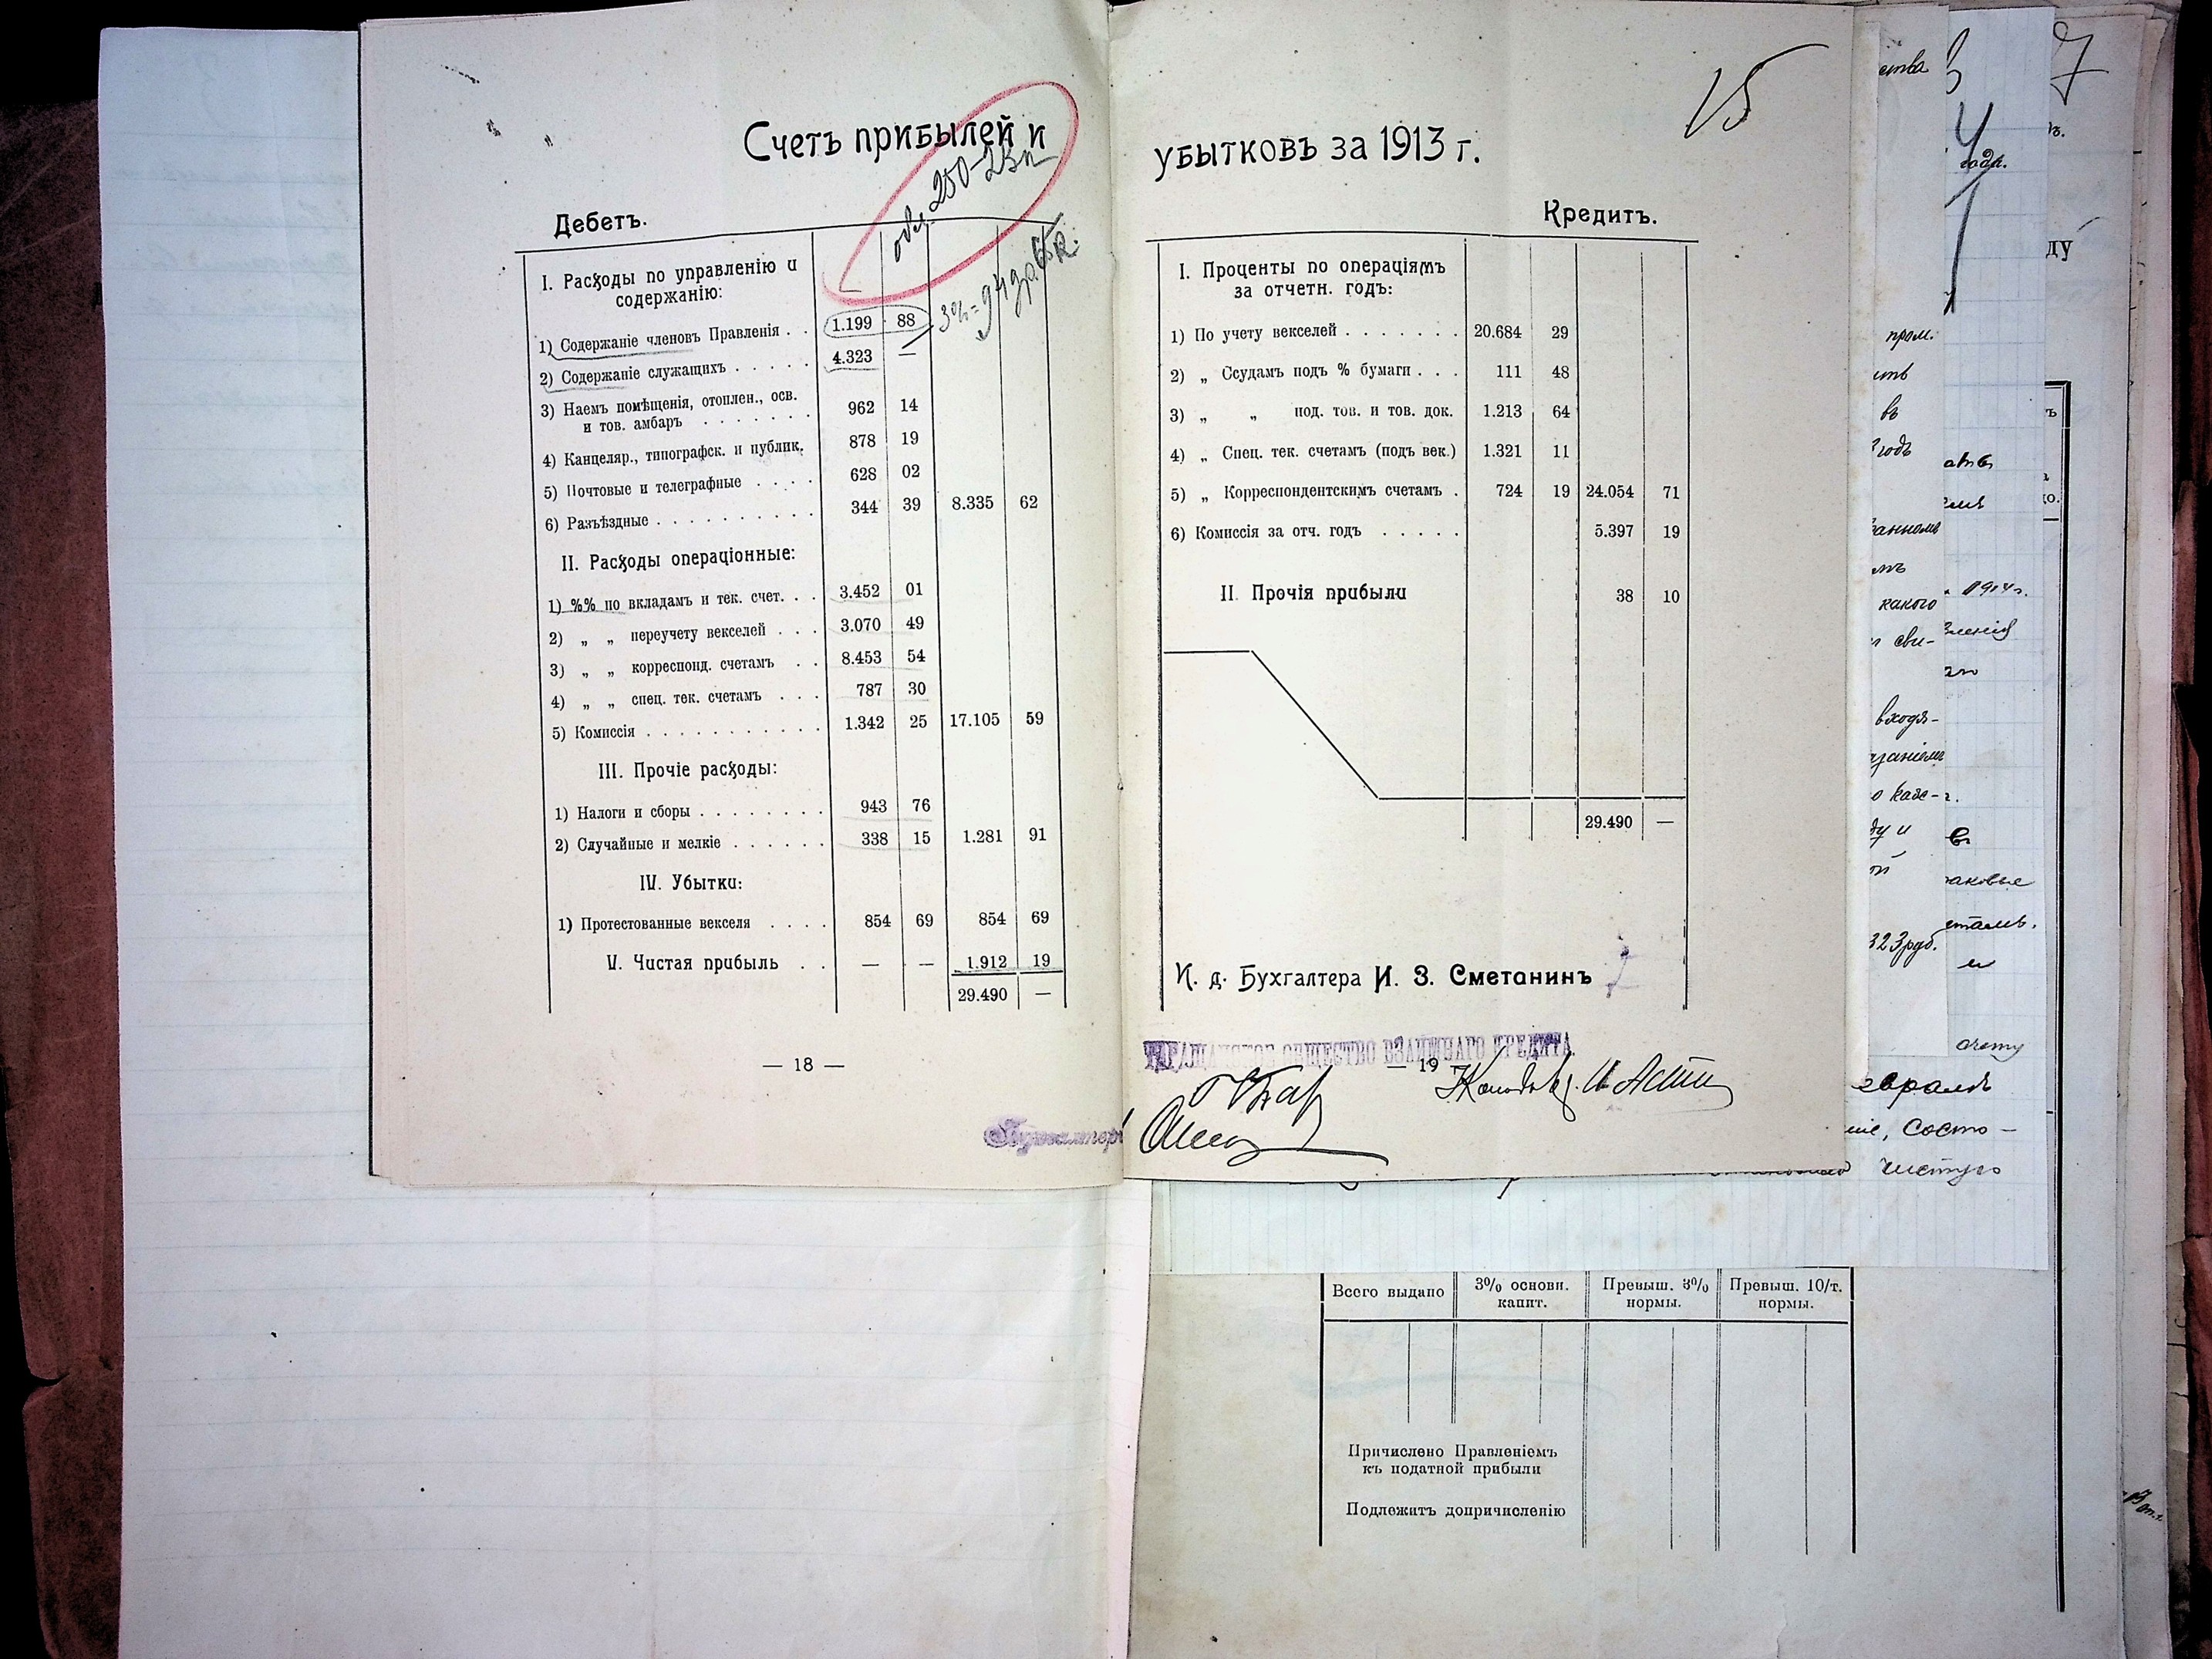 15
Счетъ прибылей и убытковъ за 1913 г.
250-23к
Дебетъ.
I. Расходы по управленію и
содержанію:
1) Содержаніе членовъ Правленія . . 1.199 88
3%=94 р. 65к.
2) Содержаніе служащихъ . . . . . 4.323 —
3) Наемъ помѣщенія, отоплен., осв.
и тов. амбаръ . . . . . . . 962 14
4) Канцеляр., типографск. и публик. 878 19
5) Почтовые и телеграфные . . . . 628 02
6) Разъѣздные . . . . . . . . . . 344 39 8.335 62
II. Расходы операціонные:
1) %% по вкладамъ и тек. счет. . . 3.452 01
2) „ „ переучету векселей . . . 3.070 49
3) „ „ корреспонд. счетамъ . . 8.453 54
4) „ „ спец. тек. счетамъ . . . 787 30
5) Комиссія . . . . . . . . . . . 1.342 25 17.105 59
III. Прочіе расходы:
1) Налоги и сборы . . . . . . . . 943 76
2) Случайные и мелкіе . . . . . . 338 15 1.281 91
IV. Убытки:
1) Протестованные векселя . . . . 854 69 854 69
V. Чистая прибыль . . — — 1.912 19
29.490 —
— 18 —
Кредитъ.
I. Проценты по операціямъ
за отчетн. годъ:
1) По учету векселей . . . . . . . 20.684 29
2) „ Ссудамъ подъ % бумаги . . . 111 48
3) „ „ под. тов. и тов. док. 1.213 64
4) „ Спец. тек. счетамъ (подъ век.) 1.321 11
5) „ Корреспондентскимъ счетамъ . 724 19 24.054 71
6) Комиссія за отч. годъ . . . . . 5.397 19
II. Прочія прибыли 38 10
29.490 —
И. д. Бухгалтера И. З. Сметанинъ
ОБЩЕСТВО ВЗАИМНАГО КРЕДИТА
— 19 —
Бухгалтеръ
ства
7
4
годъ.
ду
пром.
въ
годъ
1914г.
какого
сви-
вленія
входя-
заніемъ
ду и
323руб.
счету
ніе, состо-
чистую
Всего выдано
3% основн.
капит.
Превыш. 3%
нормы.
Превыш. 10/т.
нормы.
Причислено Правленіемъ
къ податной прибыли
Подлежитъ допричисленію